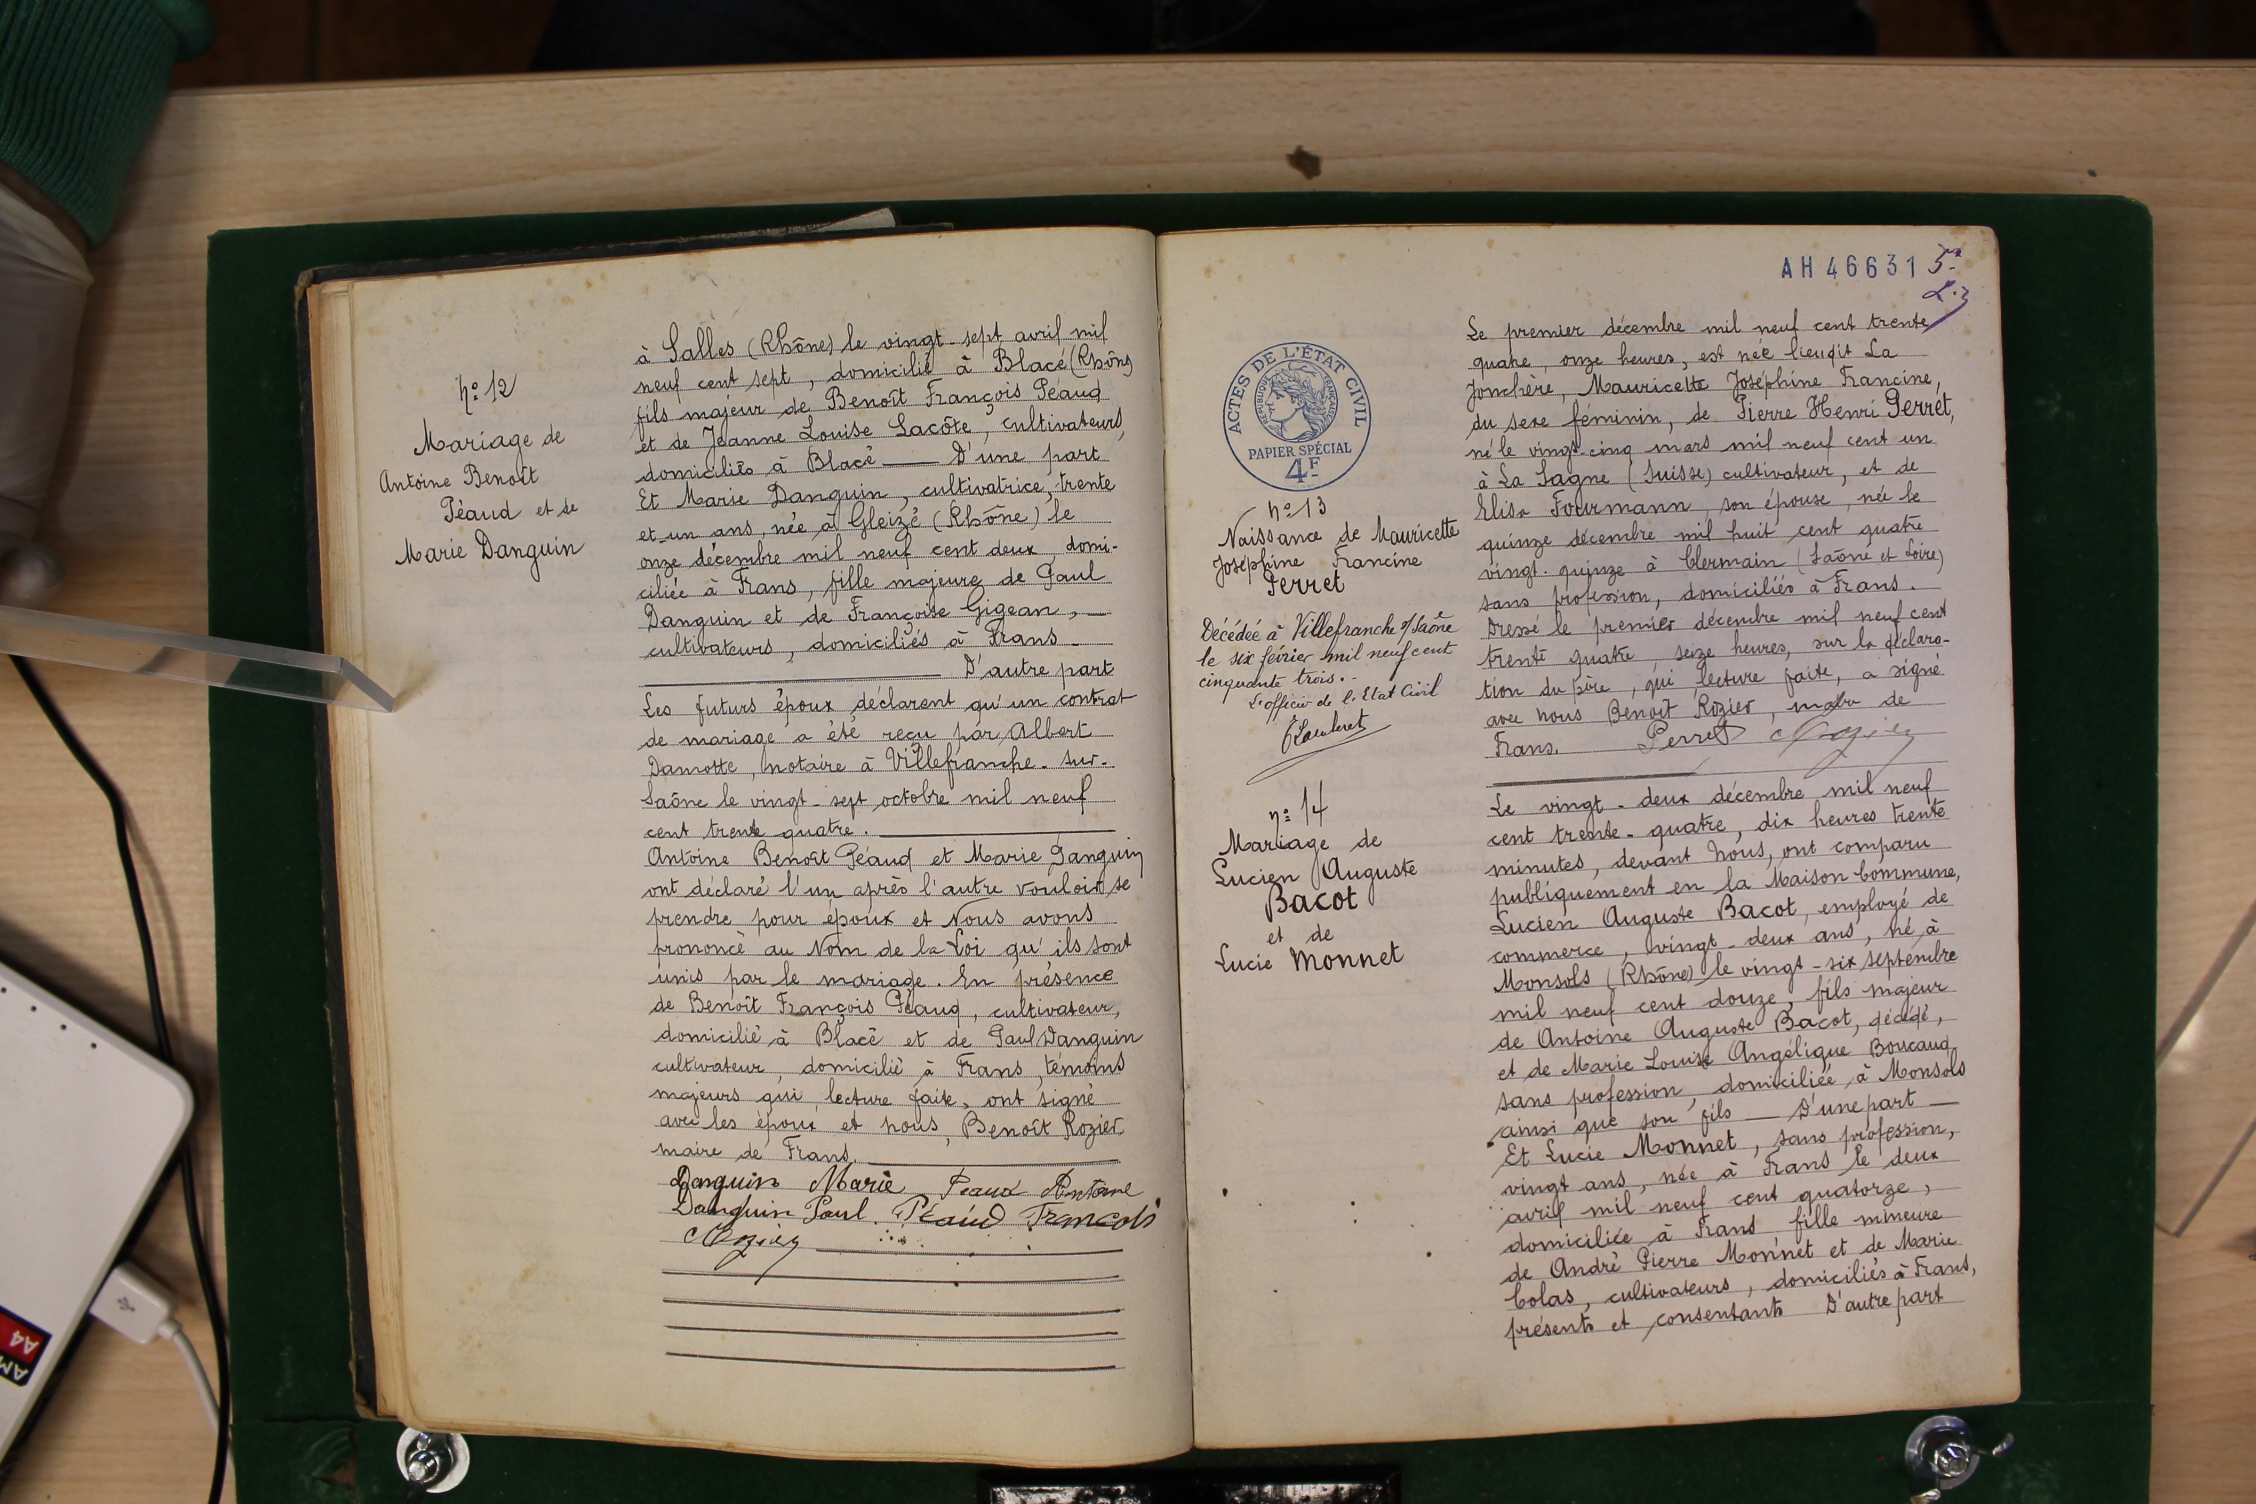 nº 12
Mariage de
Antoine Benoît
Péaud et de
Marie Danguin
à Salles (Rhône) le vingt-sept avril mil
neuf cent sept, domicilié à Blacé (Rhône)
fils majeur de Benoît François Péaud
et de Jeanne Louise Lacôte, cultivateurs,
domiciliés à Blacé — D'une part
Et Marie Danguin, cultivatrice, trente
et un ans, née à Gleizé (Rhône) le
onze décembre mil neuf cent deux, domi-
ciliée à Frans, fille majeure de Paul
Danguin et de Françoise Gigean, —
cultivateurs, domiciliés à Frans —
D'autre part
Les futurs époux déclarent qu'un contrat
de mariage a été reçu par Albert
Damotte, notaire à Villefranche-sur-
Saône le vingt-sept octobre mil neuf
cent trente quatre.
Antoine Benoît Péaud et Marie Danguin
ont déclaré l'un après l'autre vouloir se
prendre pour époux et Nous avons
prononcé au Nom de la Loi qu'ils sont
unis par le mariage. En présence
de Benoît François Péaud, cultivateur,
domicilié à Blacé et de Paul Danguin
cultivateur, domicilié à Frans, témoins
majeurs qui, lecture faite, ont signé
avec les époux et nous, Benoît Rozier
maire de Frans.
Danguin Marie Peaud Antoine
Danguin Paul Péaud François
Rozier
AH 46631 5
ACTES DE L'ÉTAT CIVIL
RÉPUBLIQUE FRANÇAISE
PAPIER SPÉCIAL
4F
nº 13
Naissance de Mauricette
Joséphine Francine
Perret
Décédée à Villefranche s/Saône
le six février mil neuf cent
cinquante trois.-
L'officier de l'Etat Civil
nº 14
Mariage de
Lucien Auguste
Bacot
et de
Lucie Monnet
Le premier décembre mil neuf cent trente
quatre, onze heures, est née lieudit La
Jonchère, Mauricette Joséphine Francine,
du sexe féminin, de Pierre Henri Perret,
né le vingt-cinq mars mil neuf cent un
à La Sagne (Suisse) cultivateur, et de
Elisa Fourmann, son épouse, née le
quinze décembre mil huit cent quatre
vingt-quinze à Clermain (Saône et Loire)
sans profession, domiciliés à Frans.
Dressé le premier décembre mil neuf cent
trente quatre, seize heures, sur la déclara-
tion du père, qui, lecture faite, a signé
avec nous Benoît Rozier, maire de
Frans. Perret Rozier
Le vingt-deux décembre mil neuf
cent trente-quatre, dix heures trente
minutes, devant Nous, ont comparu
publiquement en la Maison Commune,
Lucien Auguste Bacot, employé de
commerce, vingt-deux ans, né à
Monsols (Rhône) le vingt-six septembre
mil neuf cent douze, fils majeur
de Antoine Auguste Bacot, décédé,
et de Marie Louise Angélique Boucaud
sans profession, domiciliée à Monsols
ainsi que son fils — D'une part —
Et Lucie Monnet, sans profession,
vingt ans, née à Frans le deux
avril mil neuf cent quatorze,
domiciliée à Frans fille mineure
de André Pierre Monnet et de Marie
Colas, cultivateurs, domiciliés à Frans,
présents et consentants D'autre part
A4